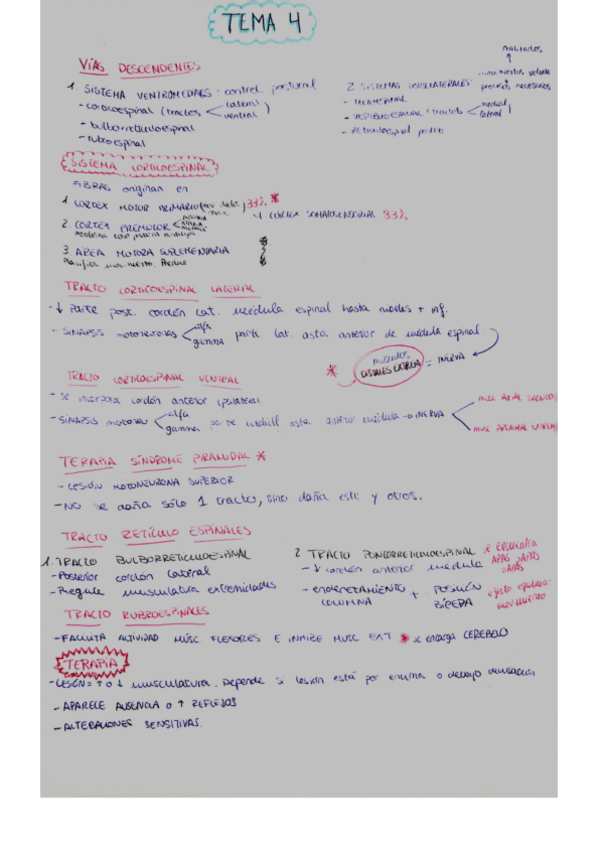 TEMA 4
VÍAS DESCENDENTES
1. SISTEMA VENTROMEDIALES: control postural
- corticoespinal (tractos lateral ventral)
- bulborreticuloespinal
- rubroespinal
2 SISTEMAS DORSOLATERALES:
- TECTOESPINAL
- VESTIBULOESPINAL (tractos medial lateral)
- Reticuloespinal
SISTEMA CORTICOESPINAL
FIBRAS originan en
1 CÓRTEX MOTOR PRIMARIO 33% *
4 CÓRTEX SOMATOSENSORIAL 33%
2. CÓRTEX PREMOTOR
3. ÁREA MOTORA SUPLEMENTARIA
TRACTO CORTICOESPINAL LATERAL
- ↓ Parte post. cordón lat. médula espinal hasta niveles + inf.
- SINAPSIS motoneuronas alfa gamma parte lat. asta anterior de médula espinal
* músculos DISTALES = INERVA
TRACTO CORTICOESPINAL VENTRAL
- se incorpora cordón anterior ipsilateral
- SINAPSIS motoneu alfa gamma asta anterior médula → INERVA
MUSC AXIAL
MUSC PROXIMAL
TERAPIA SÍNDROME PIRAMIDAL *
- LESIÓN MOTONEURONA SUPERIOR
- NO se daña sólo 1 tracto, sino daña este y otros.
TRACTO RETÍCULO ESPINALES
1. TRACTO BULBORRETICULOESPINAL
- Posterior cordón lateral
- Regula musculatura extremidades
2 TRACTO PONTORRETICULOESPINAL
- ↓ cordón anterior médula
- ENDEREZAMIENTO COLUMNA + POSICIÓN BÍPEDA
TRACTO RUBROESPINALES
- FACILITA ACTIVIDAD MÚSC FLEXORES E INHIBE MUSC EXT * se encarga CEREBELO
TERAPIA
- LESIÓN = ↑ o ↓ musculatura. Depende si lesión está por encima o debajo
- APARECE AUSENCIA o ↑ REFLEJOS
- ALTERACIONES SENSITIVAS.